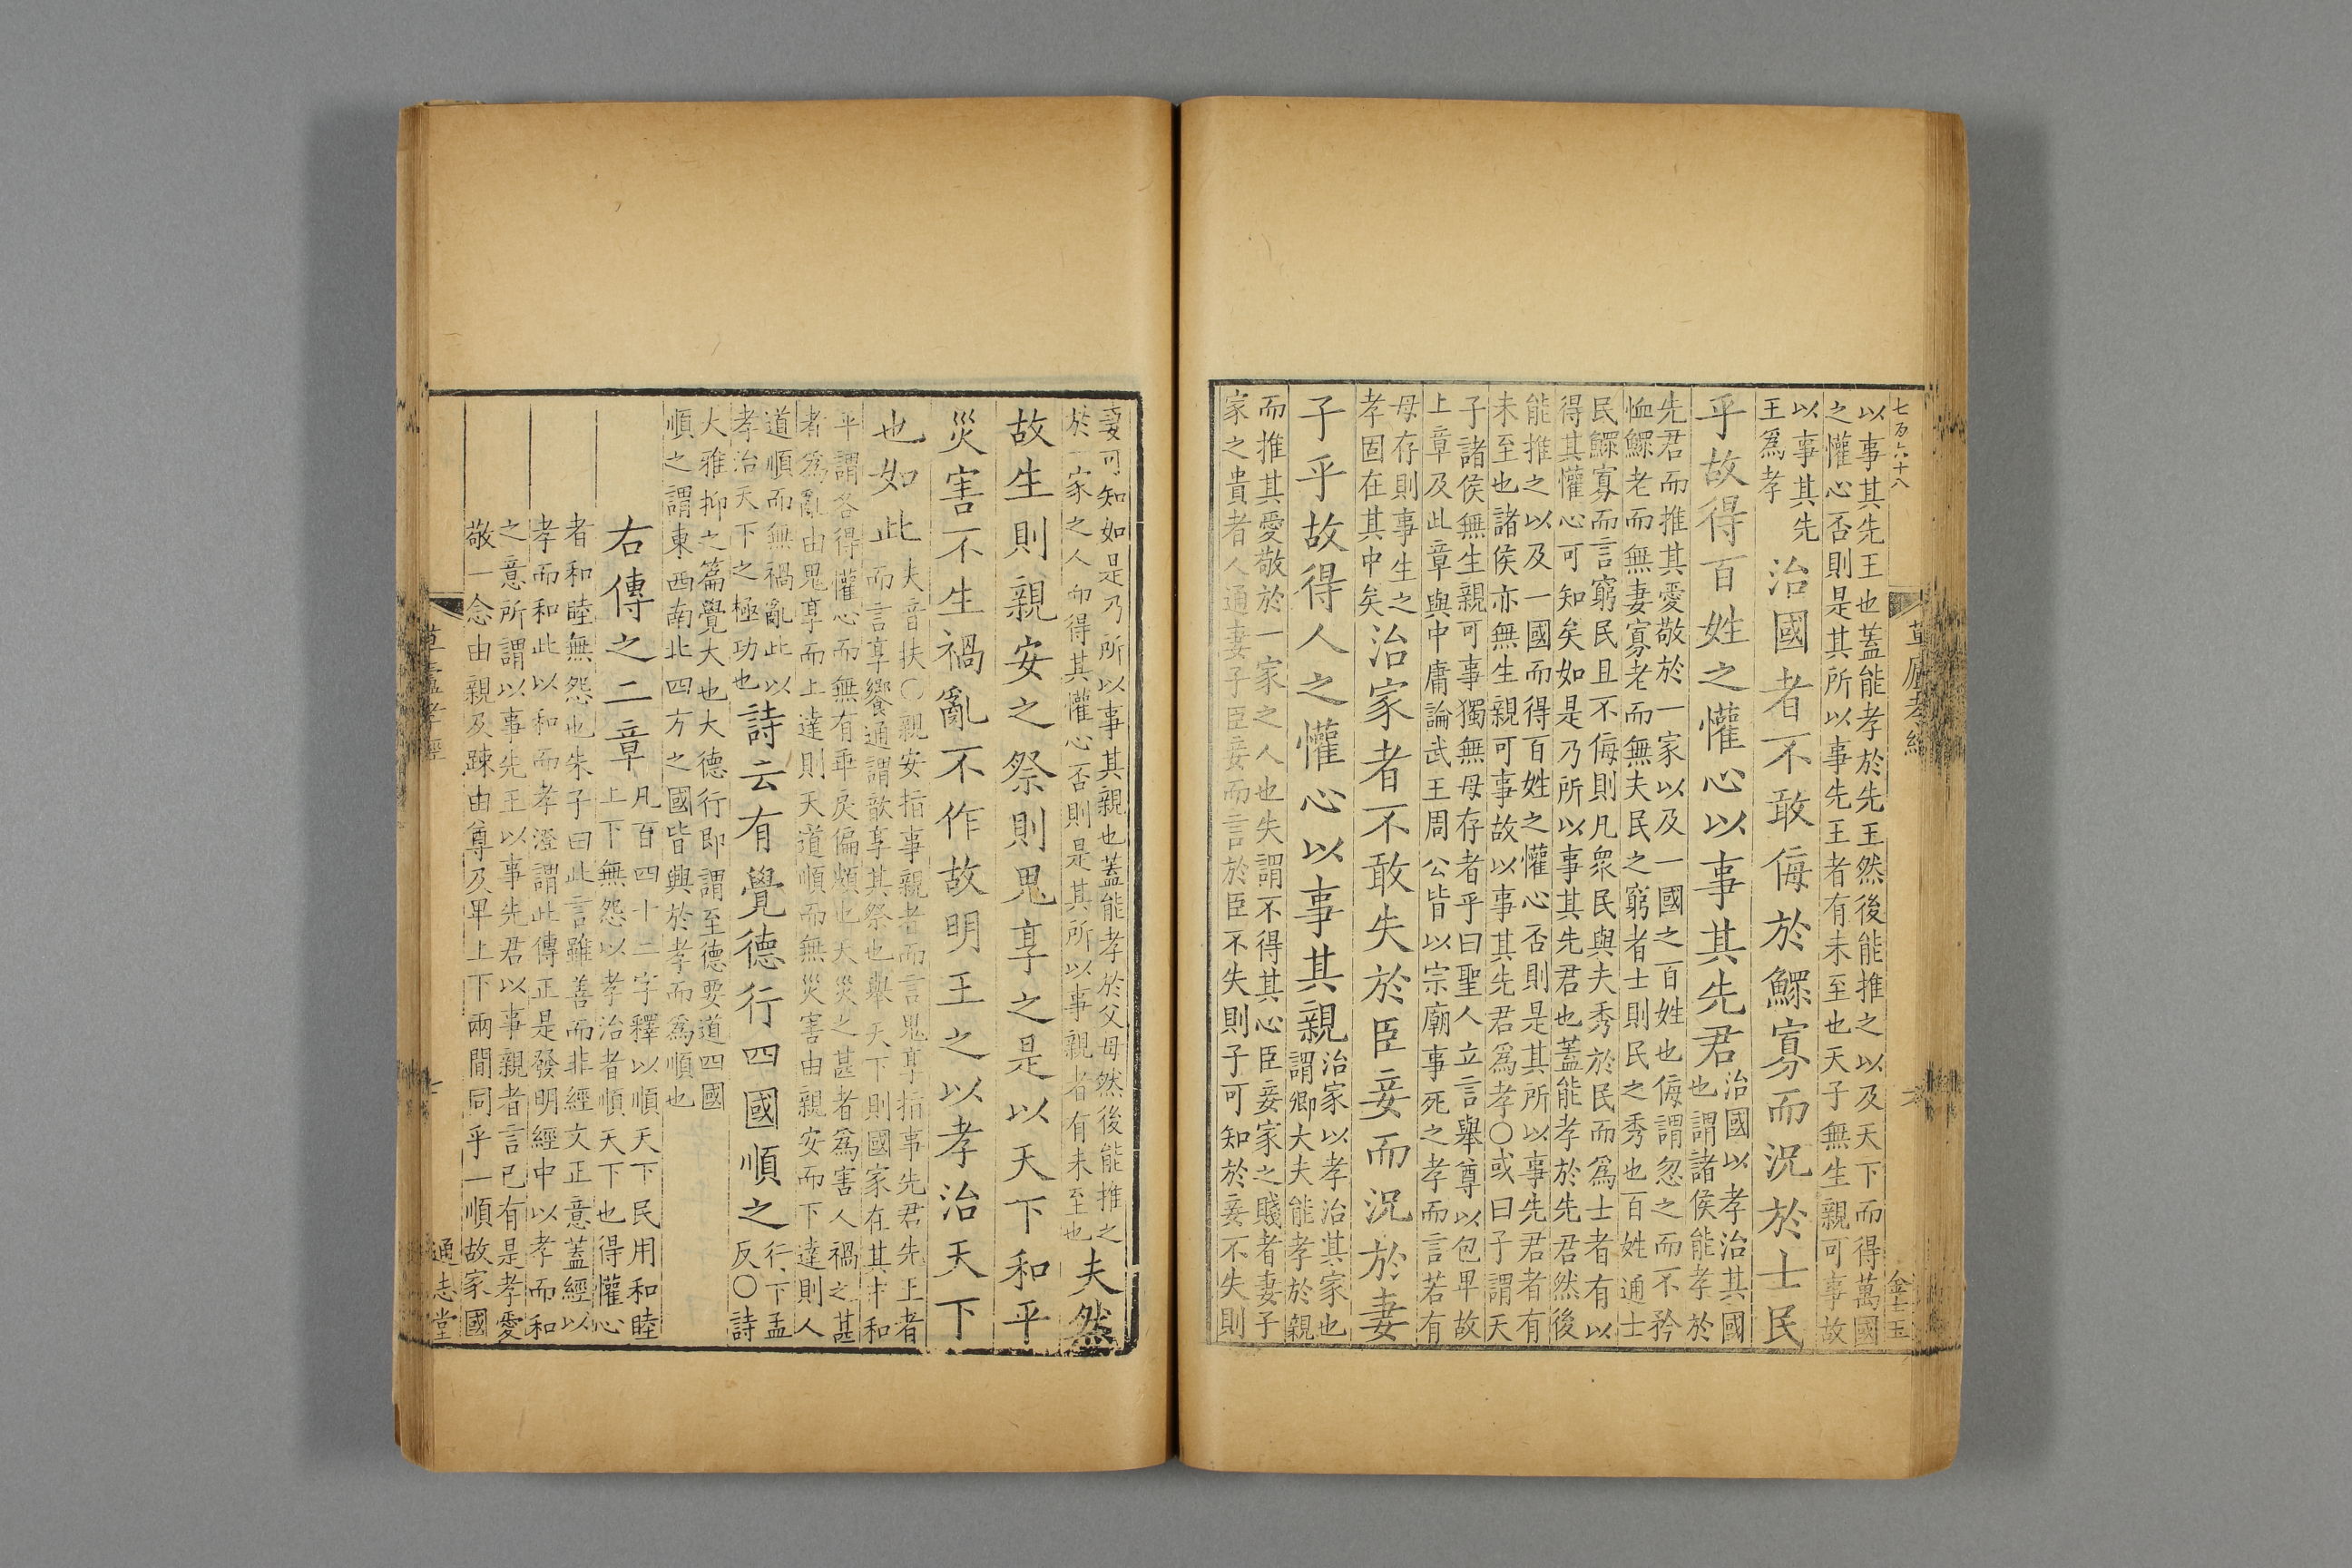 七百六十八
草廬孝經
金士玉
以事其先王也蓋能孝於先王然後能推之以及天下而得萬國
之懽心否則是其所以事先王者有未至也天子無生親可事故
以事其先
王爲孝
治國者不敢侮於鰥寡而況於士民
乎故得百姓之懽心以事其先君
治國以孝治其國
也謂諸侯能孝於
先君而推其愛敬於一家以及一國之百姓也侮謂忽之而不矜
恤鰥老而無妻寡老而無夫民之窮者士則民之秀也百姓通士
民鰥寡而言窮民且不侮則凡衆民與夫秀於民而爲士者有以
得其懽心可知矣如是乃所以事其先君也蓋能孝於先君然後
能推之以及一國而得百姓之懽心否則是其所以事先君者有
未至也諸侯亦無生親可事故以事其先君爲孝〇或曰子謂天
子諸侯無生親可事獨無母存者乎曰聖人立言舉尊以包卑故
上章及此章與中庸論武王周公皆以宗廟事死之孝而言若有
母存則事生之
孝固在其中矣
治家者不敢失於臣妾而況於妻
子乎故得人之懽心以事其親
治家以孝治其家也
謂卿大夫能孝於親
而推其愛敬於一家之人也失謂不得其心臣妾家之賤者妻子
家之貴者人通妻子臣妾而言於臣不失則子可知於妾不失則
妻可知如是乃所以事其親也蓋能孝於父母然後能推之
於一家之人而得其懽心否則是其所以事親者有未至也
夫然
故生則親安之祭則鬼享之是以天下和平
災害不生禍亂不作故明王之以孝治天下
也如此
夫音扶〇親安指事親者而言鬼享指事先君先王者
而言享饗通謂歆享其祭也舉天下則國家在其中和
平謂各得懽心而無有乖戾偏頗也天災之甚者爲害人禍之甚
者爲亂由鬼享而上達則天道順而無災害由親安而下達則人
道順而無禍亂此以
孝治天下之極功也
詩云有覺德行四國順之
行下孟
反〇詩
大雅抑之篇覺大也大德行即謂至德要道四國
順之謂東西南北四方之國皆興於孝而爲順也
右傳之二章
凡百四十二字釋以順天下民用和睦
上下無怨以孝治者順天下也得懽心
者和睦無怨也朱子曰此言雖善而非經文正意蓋經以
孝而和此以和而孝澄謂此傳正是發明經中以孝而和
之意所謂以事先王以事先君以事親者言已有是孝愛
敬一念由親及踈由尊及卑上下兩間同乎一順故家國
草廬孝經
通志堂